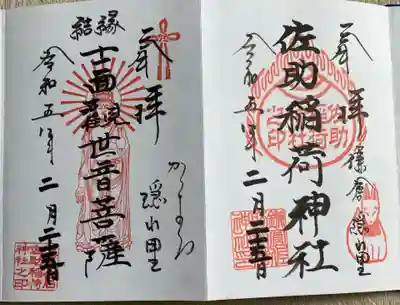 奉拝
鎌倉 隠れ里
佐助稲荷神社
令和五年 二月二十五日
奉拝
かまくら
隠れ里
縁結
十一面観世音菩薩
令和五年 二月二十五日